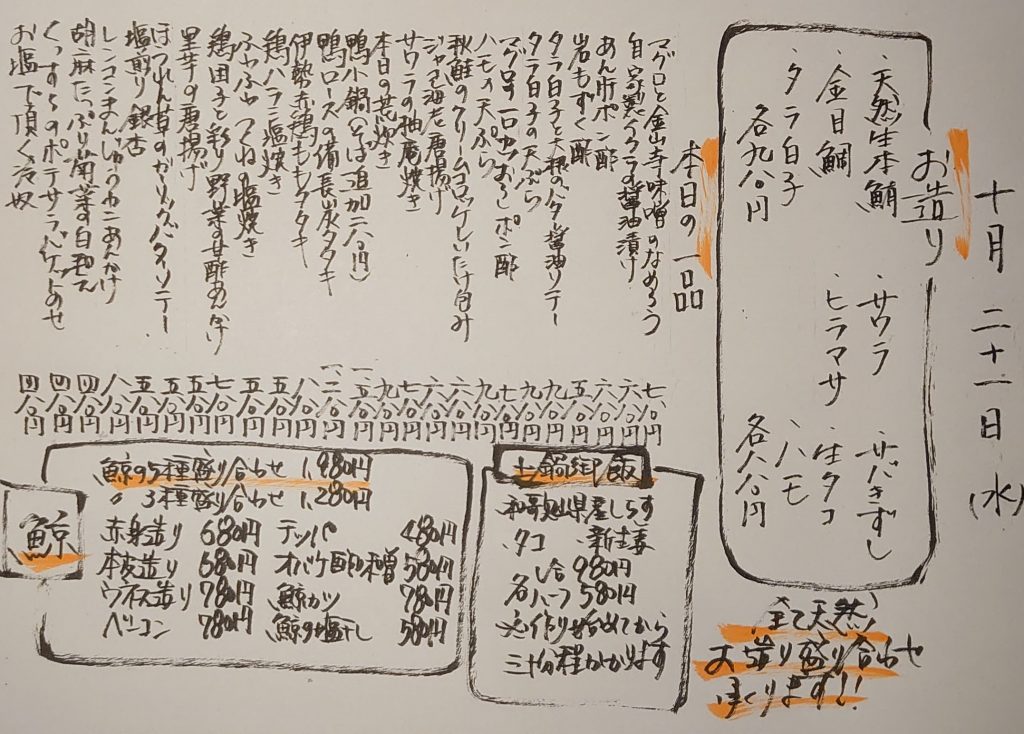 十月二十一日(水)
お造り
・天然生本鮪
・金目鯛
・タラ白子
各九八〇円
・サワラ
・ヒラマサ
・サバきずし
・生タコ
・ハモ
各八八〇円
全て天然
お造り盛り合わせ
つくります!!
本日の一品
マグロと金山寺味噌のなめろう 七八〇円
自家製イクラの醤油漬け 六八〇円
あん肝ポン酢 六八〇円
岩もずく酢 五八〇円
タラ白子と大根のバター醤油ソテー 九八〇円
タラ白子の天ぷら 九八〇円
マグロの一口カツおろしポン酢 七八〇円
ハモの天ぷら 九八〇円
秋鮭のクリームコロッケしいたけ包み 六八〇円
ジャコ海老唐揚げ 六八〇円
サワラの柚庵焼き 七八〇円
本日の甘焼き 九八〇円
鴨小鍋(そば追加二八〇円) 一、五八〇円
鴨ロースの備長炭タタキ 一、二八〇円
伊勢赤鶏ももタタキ 八八〇円
鶏ハラミ塩焼き 五八〇円
ふわふわつくねの塩焼き 五八〇円
鶏団子と彩り野菜の甘酢あんかけ 七八〇円
里芋の唐揚げ 五八〇円
ほうれん草のガーリックバターソテー 五八〇円
塩煎り銀杏 五八〇円
レンコンまんじゅうカニあんかけ 八八〇円
胡麻たっぷり菊菜の白和え 四八〇円
くっすらのポテサラバゲットのせ 四八〇円
お塩で頂く冷奴 四八〇円
土鍋御飯
和歌山県産しらす
タコ 新生姜
各一合980円
各ハーフ580円
※作り始めてから
三十分程かかります
鯨
鯨の5種盛り合わせ 1,980円
〃 3種盛り合わせ 1,280円
赤身造り 680円 テッパ 480円
本皮造り 680円 オバケ酢味噌 580円
ウネス造り 780円 鯨カツ 780円
ベーコン 780円 鯨の塩干し 580円